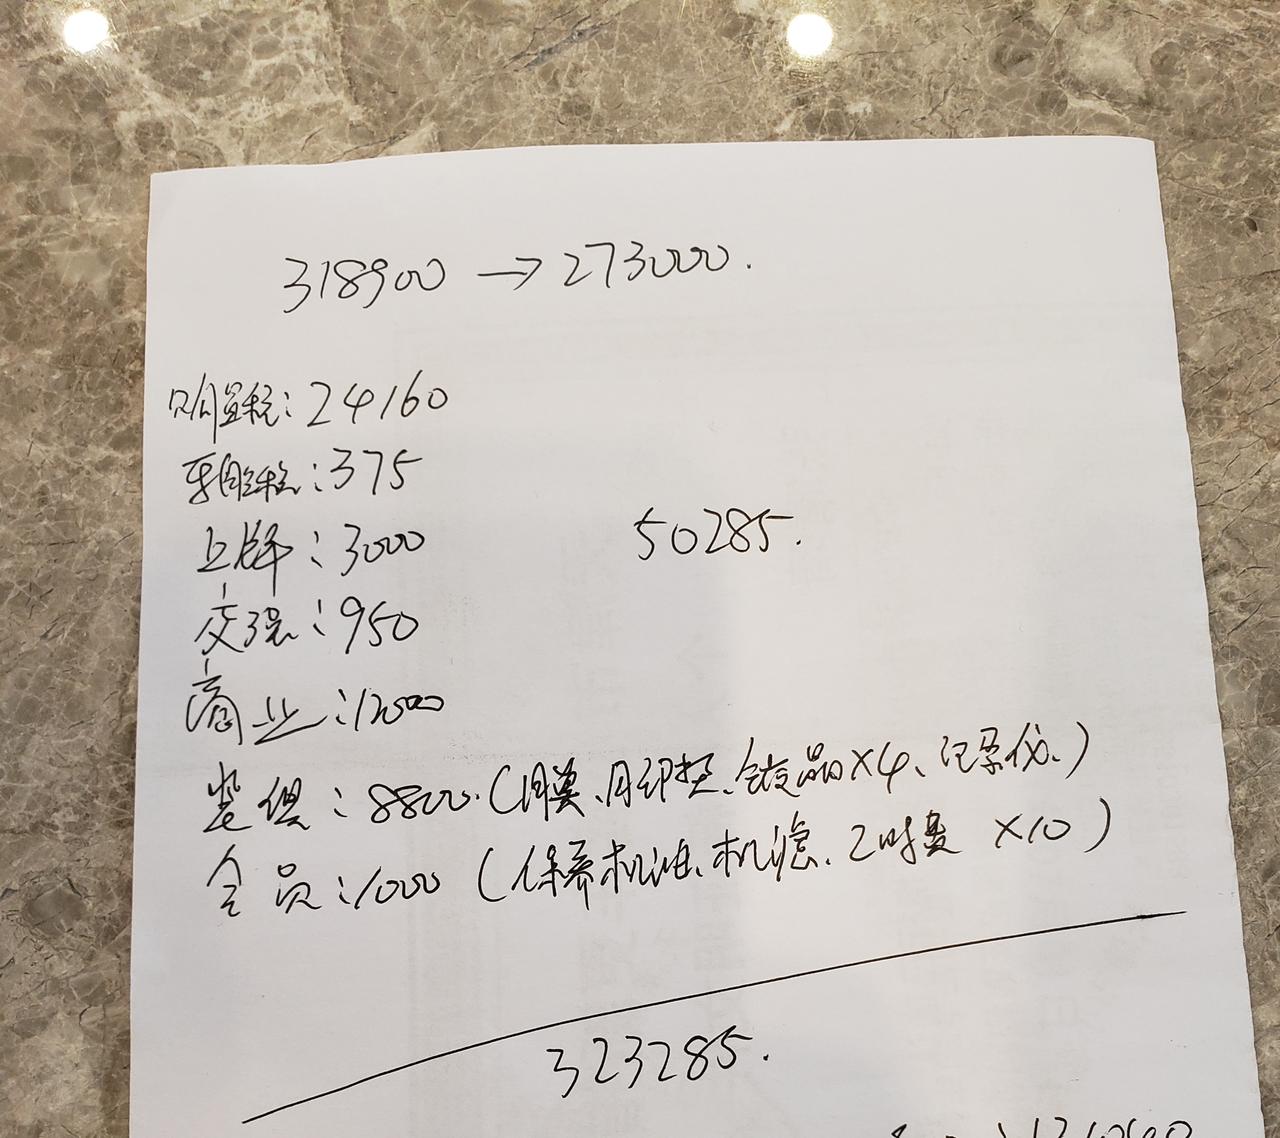 318900 → 273000.
购置税：24160
车船税：375
上牌：3000
50285.
交强：950
商业：12000
装俱：8800.（膜、脚垫、×4、记录仪、）
会员：1000（保养机油、机滤、工时费 ×10）
323285.